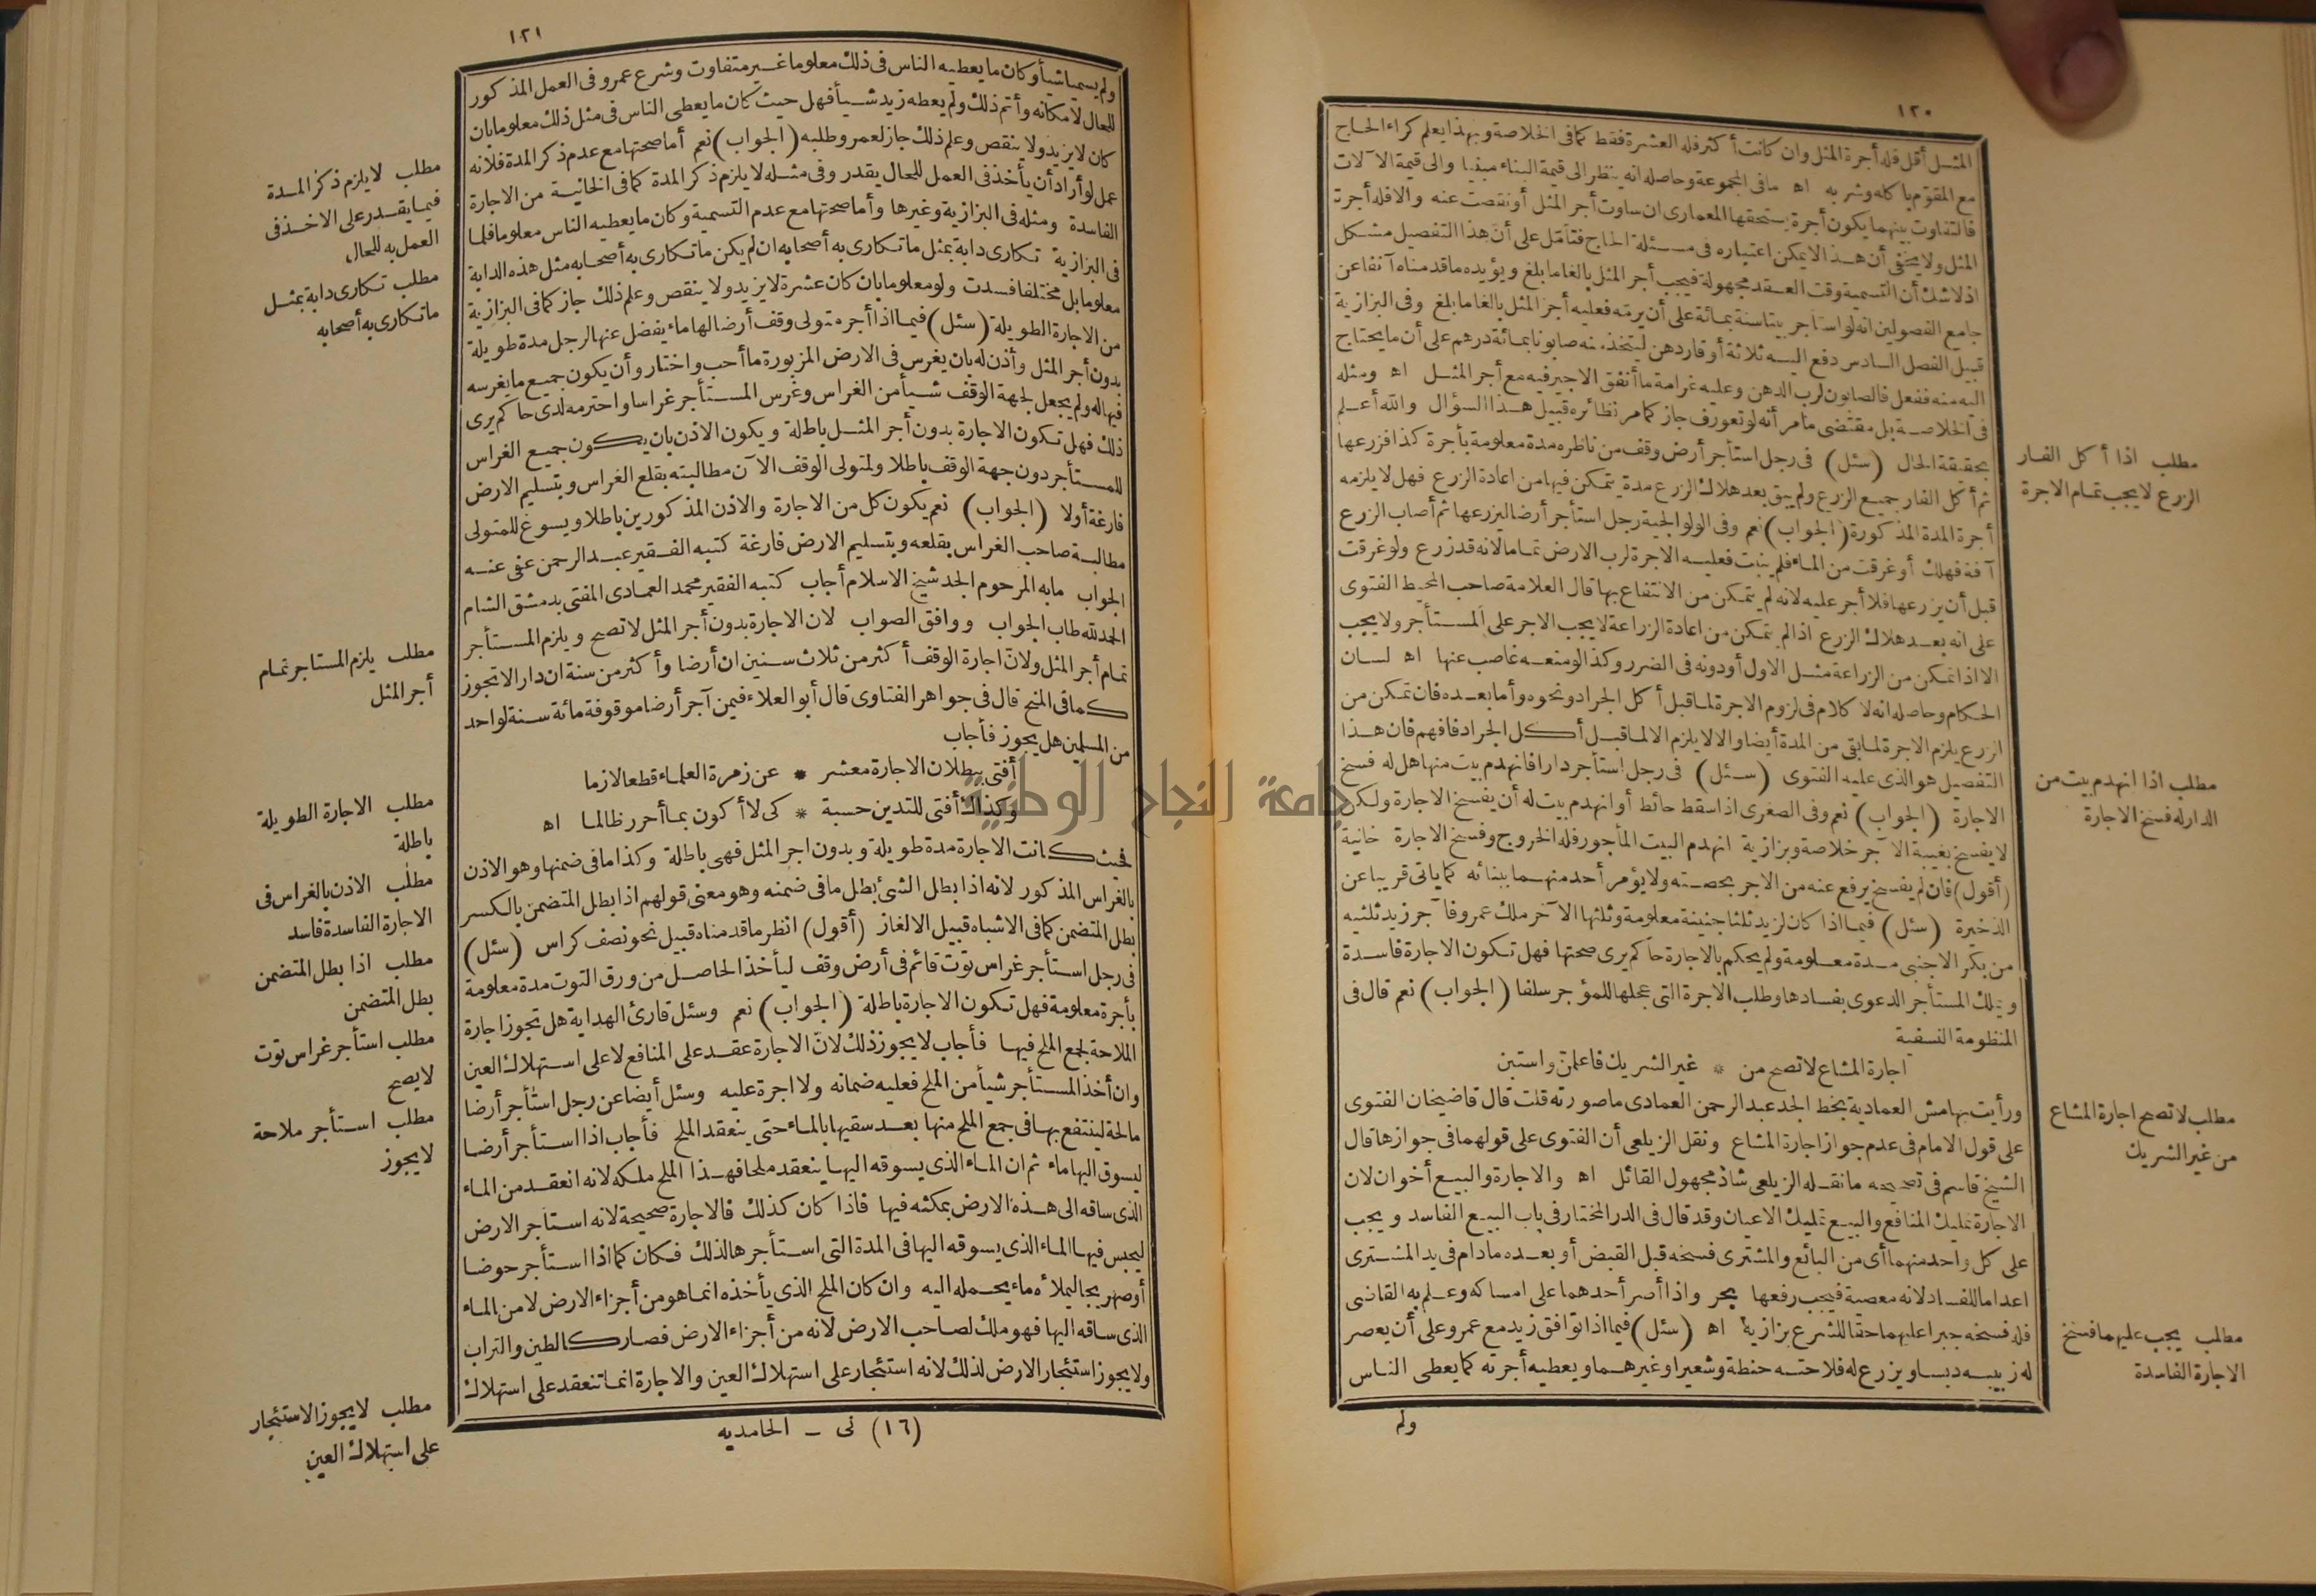 ١٢٠
المثل أقل فله أجرة المثل وان كانت أكثر فله العشرة فقط كما فى الخلاصة وبهذا يعلم كراء الحاج
مع المقوم بأكله وشربه اه ما فى المجموعة وحاصله انه ينظر الى قيمة البناء مبنيا والى قيمة الآلات
فالتفاوت بينهما يكون أجرة يستحقها المعمارى ان ساوت أجر المثل أو نقصت عنه والا فله أجرة
المثل ولا يخفى أن هذا لا يمكن اعتباره فى مسئلة الحاج فتأمل على أن هذا التفصيل مشكل
اذ لا شك أن التسمية وقت العقد مجهولة فيجب أجر المثل بالغا ما بلغ ويؤيده ما قدمناه آنفا عن
جامع الفصولين انه لو استأجر بيتا سنة بمائة على أن يرمّه فعليه أجر المثل بالغا ما بلغ وفى البزازية
قبيل الفصل السادس دفع اليه ثلاثة أوقار دهن ليتخذ منه صابونا بمائة درهم على أن ما يحتاج
اليه منه ففعل فالصابون لرب الدهن وعليه غرامة ما أنفق الاجير فيه مع أجر المثل اه ومثله
فى الخلاصة بل مقتضى ما مر أنه لو تعورف جاز كما مر نظائره قبيل هذا السؤال والله أعلم
بحقيقة الحال (سئل) فى رجل استأجر أرض وقف من ناظره مدة معلومة بأجرة كذا فزرعها
ثم أكل الفار جميع الزرع ولم يبق بعد هلاك الزرع مدة يتمكن فيها من اعادة الزرع فهل لا يلزمه
أجرة المدة المذكورة (الجواب) نعم وفى الولوالجية رجل استأجر أرضا ليزرعها ثم أصاب الزرع
آفة فهلك أو غرقت من الماء فلم ينبت فعليه الاجرة لرب الارض تماما لانه قد زرع ولو غرقت
قبل أن يزرعها فلا أجر عليه لانه لم يتمكن من الانتفاع بها قال العلامة صاحب المحيط الفتوى
على انه بعد هلاك الزرع اذا لم يتمكن من اعادة الزراعة لا يجب الاجر على المستأجر ولا يجب
الا اذا تمكن من الزراعة مثل الاول أو دونه فى الضرر وكذا لو منعه غاصب عنها اه لسان
الحكام وحاصله انه لا كلام فى لزوم الاجرة لما قبل أكل الجراد ونحوه وأما بعده فان تمكن من
الزرع يلزم الاجرة لما بقى من المدة أيضا والا لا يلزم الا لما قبل أكل الجراد فافهم فان هذا
التفصيل هو الذى عليه الفتوى (سئل) فى رجل استأجر دارا فانهدم بيت منها هل له فسخ
الاجارة (الجواب) نعم وفى الصغرى اذا سقط حائط أو انهدم بيت له أن يفسخ الاجارة ولكن
لا يفسخ بغيبة الآجر خلاصة وبزازية انهدم البيت المأجور فله الخروج وفسخ الاجارة خانية
(أقول) فان لم يفسخ يرفع عنه من الاجر بحصته ولا يؤمر أحد منهما ببنائه كما يأتى قريبا عن
الذخيرة (سئل) فيما اذا كان لزيد ثلثا جنينة معلومة وثلثها الآخر ملك عمرو فآجر زيد ثلثيه
من بكر الاجنبى مدة معلومة ولم يحكم بالاجارة حاكم يرى صحتها فهل تكون الاجارة فاسدة
ويملك المستأجر الدعوى بفسادها وطلب الاجرة التى عجلها للمؤجر سلفا (الجواب) نعم قال فى
المنظومة النسفية
اجارة المشاع لا تصح من * غير الشريك فاعلمن واستبن
ورأيت بهامش العمادية بخط الجد عبد الرحمن العمادى ما صورته قلت قال قاضيخان الفتوى
على قول الامام فى عدم جواز اجارة المشاع ونقل الزيلعى أن الفتوى على قولهما فى جوازها قال
الشيخ قاسم فى تصحيحه ما نقله الزيلعى شاذ مجهول القائل اه والاجارة والبيع أخوان لان
الاجارة تمليك المنافع والبيع تمليك الاعيان وقد قال فى الدر المختار فى باب البيع الفاسد ويجب
على كل واحد منهما أى من البائع والمشترى فسخه قبل القبض أو بعده مادام فى يد المشترى
اعداما للفساد لانه معصية فيجب رفعها بحر واذا أصر أحدهما على امساكه وعلم به القاضى
فله فسخه جبرا عليهما حقا للشرع بزازية اه (سئل) فيما اذا توافق زيد مع عمرو على أن يعصر
له زبيبه دبسا ويزرع له فلاحته حنطة وشعيرا وغيرهما ويعطيه أجرته كما يعطى الناس
ولم
مطلب اذا أكل الفار
الزرع لا يجب تمام الاجرة
مطلب اذا انهدم بيت من
الدار له فسخ الاجارة
مطلب لا تصح اجارة المشاع
من غير الشريك
مطلب يجب عليهما فسخ
الاجارة الفاسدة
١٢١
ولم يسميا شيأ وكان ما يعطيه الناس فى ذلك معلوما غير متفاوت وشرع عمرو فى العمل المذكور
للحال لامكانه وأتم ذلك ولم يعطه زيد شيأ فهل حيث كان ما يعطى الناس فى مثل ذلك معلوما بان
كان لا يزيد ولا ينقص وعلم ذلك جاز لعمرو طلبه (الجواب) نعم أما صحتها مع عدم ذكر المدة فلانه
عمل لو أراد أن يأخذ فى العمل للحال يقدر وفى مثله لا يلزم ذكر المدة كما فى الخانية من الاجارة
الفاسدة ومثله فى البزازية وغيرها وأما صحتها مع عدم التسمية وكان ما يعطيه الناس معلوما فلما
فى البزازية تكارى دابة بمثل ما تكارى به أصحابه ان لم يكن ما تكارى به أصحابه مثل هذه الدابة
معلوما بل مختلفا فسدت ولو معلوما بان كان عشرة لا يزيد ولا ينقص وعلم ذلك جاز كما فى البزازية
من الاجارة الطويلة (سئل) فيما اذا أجر متولى وقف أرضا لها ماء يفضل عنها لرجل مدة طويلة
بدون أجر المثل وأذن له بان يغرس فى الارض المزبورة ما أحب واختار وأن يكون جميع ما يغرسه
فيها له ولم يجعل لجهة الوقف شيأ من الغراس وغرس المستأجر غراسا واحترمه لدى حاكم يرى
ذلك فهل تكون الاجارة بدون أجر المثل باطلة ويكون الاذن بان يكون جميع الغراس
للمستأجر دون جهة الوقف باطلا ولمتولى الوقف الآن مطالبته بقلع الغراس وبتسليم الارض
فارغة أولا (الجواب) نعم يكون كل من الاجارة والاذن المذكورين باطلا ويسوغ للمتولى
مطالبة صاحب الغراس بقلعه وبتسليم الارض فارغة كتبه الفقير عبد الرحمن عفى عنه
الجواب ما به المرحوم الجد شيخ الاسلام أجاب كتبه الفقير محمد العمادى المفتى بدمشق الشام
الحمد لله طاب الجواب ووافق الصواب لان الاجارة بدون أجر المثل لا تصح ويلزم المستأجر
تمام أجر المثل ولان اجارة الوقف أكثر من ثلاث سنين ان أرضا وأكثر من سنة ان دارا لا تجوز
كما فى المنح قال فى جواهر الفتاوى قال أبو العلاء فيمن آجر أرضا موقوفة مائة سنة لواحد
من المسلمين هل يجوز فأجاب
أفتى ببطلان الاجارة معشر * عن زمرة العلماء قطعا لازما
وكذاك أفتى للتدين حسبة * كى لا أكون بما أحرر ظالما اه
فحيث كانت الاجارة مدة طويلة وبدون اجر المثل فهى باطلة وكذا ما فى ضمنها وهو الاذن
بالغراس المذكور لانه اذا بطل الشئ بطل ما فى ضمنه وهو معنى قولهم اذا بطل المتضمن بالكسر
بطل المتضمن كما فى الاشباه قبيل الالغاز (أقول) انظر ما قدمناه قبيل نحو نصف كراس (سئل)
فى رجل استأجر غراس توت قائم فى أرض وقف ليأخذ الحاصل من ورق التوت مدة معلومة
بأجرة معلومة فهل تكون الاجارة باطلة (الجواب) نعم وسئل قارئ الهداية هل تجوز اجارة
الملاحة لجمع الملح فيها فأجاب لا يجوز ذلك لان الاجارة عقد على المنافع لا على استهلاك العين
وان أخذ المستأجر شيأ من الملح فعليه ضمانه ولا اجرة عليه وسئل أيضا عن رجل استأجر أرضا
مالحة لينتفع بها فى جمع الملح منها بعد سقيها بالماء حتى ينعقد الملح فأجاب اذا استأجر أرضا
ليسوق اليها ماء ثم ان الماء الذى يسوقه اليها ينعقد ملحا فهذا الملح ملكه لانه انعقد من الماء
الذى ساقه الى هذه الارض بمكثه فيها فاذا كان كذلك فالاجارة صحيحة لانه استأجر الارض
ليحبس فيها الماء الذى يسوقه اليها فى المدة التى استأجرها لذلك فكان كما اذا استأجر حوضا
أو صهريجا ليملأه ماء يحمله اليه وان كان الملح الذى يأخذه انما هو من أجزاء الارض لا من الماء
الذى ساقه اليها فهو ملك لصاحب الارض لانه من أجزاء الارض فصار كالطين والتراب
ولا يجوز استئجار الارض لذلك لانه استئجار على استهلاك العين والاجارة انما تنعقد على استهلاك
(١٦) نى ـ الحامديه
مطلب لا يلزم ذكر المدة
فيما يقدر على الاخذ فى
العمل به للحال
مطلب تكارى دابة بمثل
ما تكارى به أصحابه
مطلب يلزم المستاجر تمام
أجر المثل
مطلب الاجارة الطويلة
باطلة
مطلب الاذن بالغراس فى
الاجارة الفاسدة فاسد
مطلب اذا بطل المتضمن
بطل المتضمن
مطلب استأجر غراس توت
لا يصح
مطلب استأجر ملاحة
لا يجوز
مطلب لا يجوز الاستئجار
على استهلاك العين
جامعة النجاح الوطنية